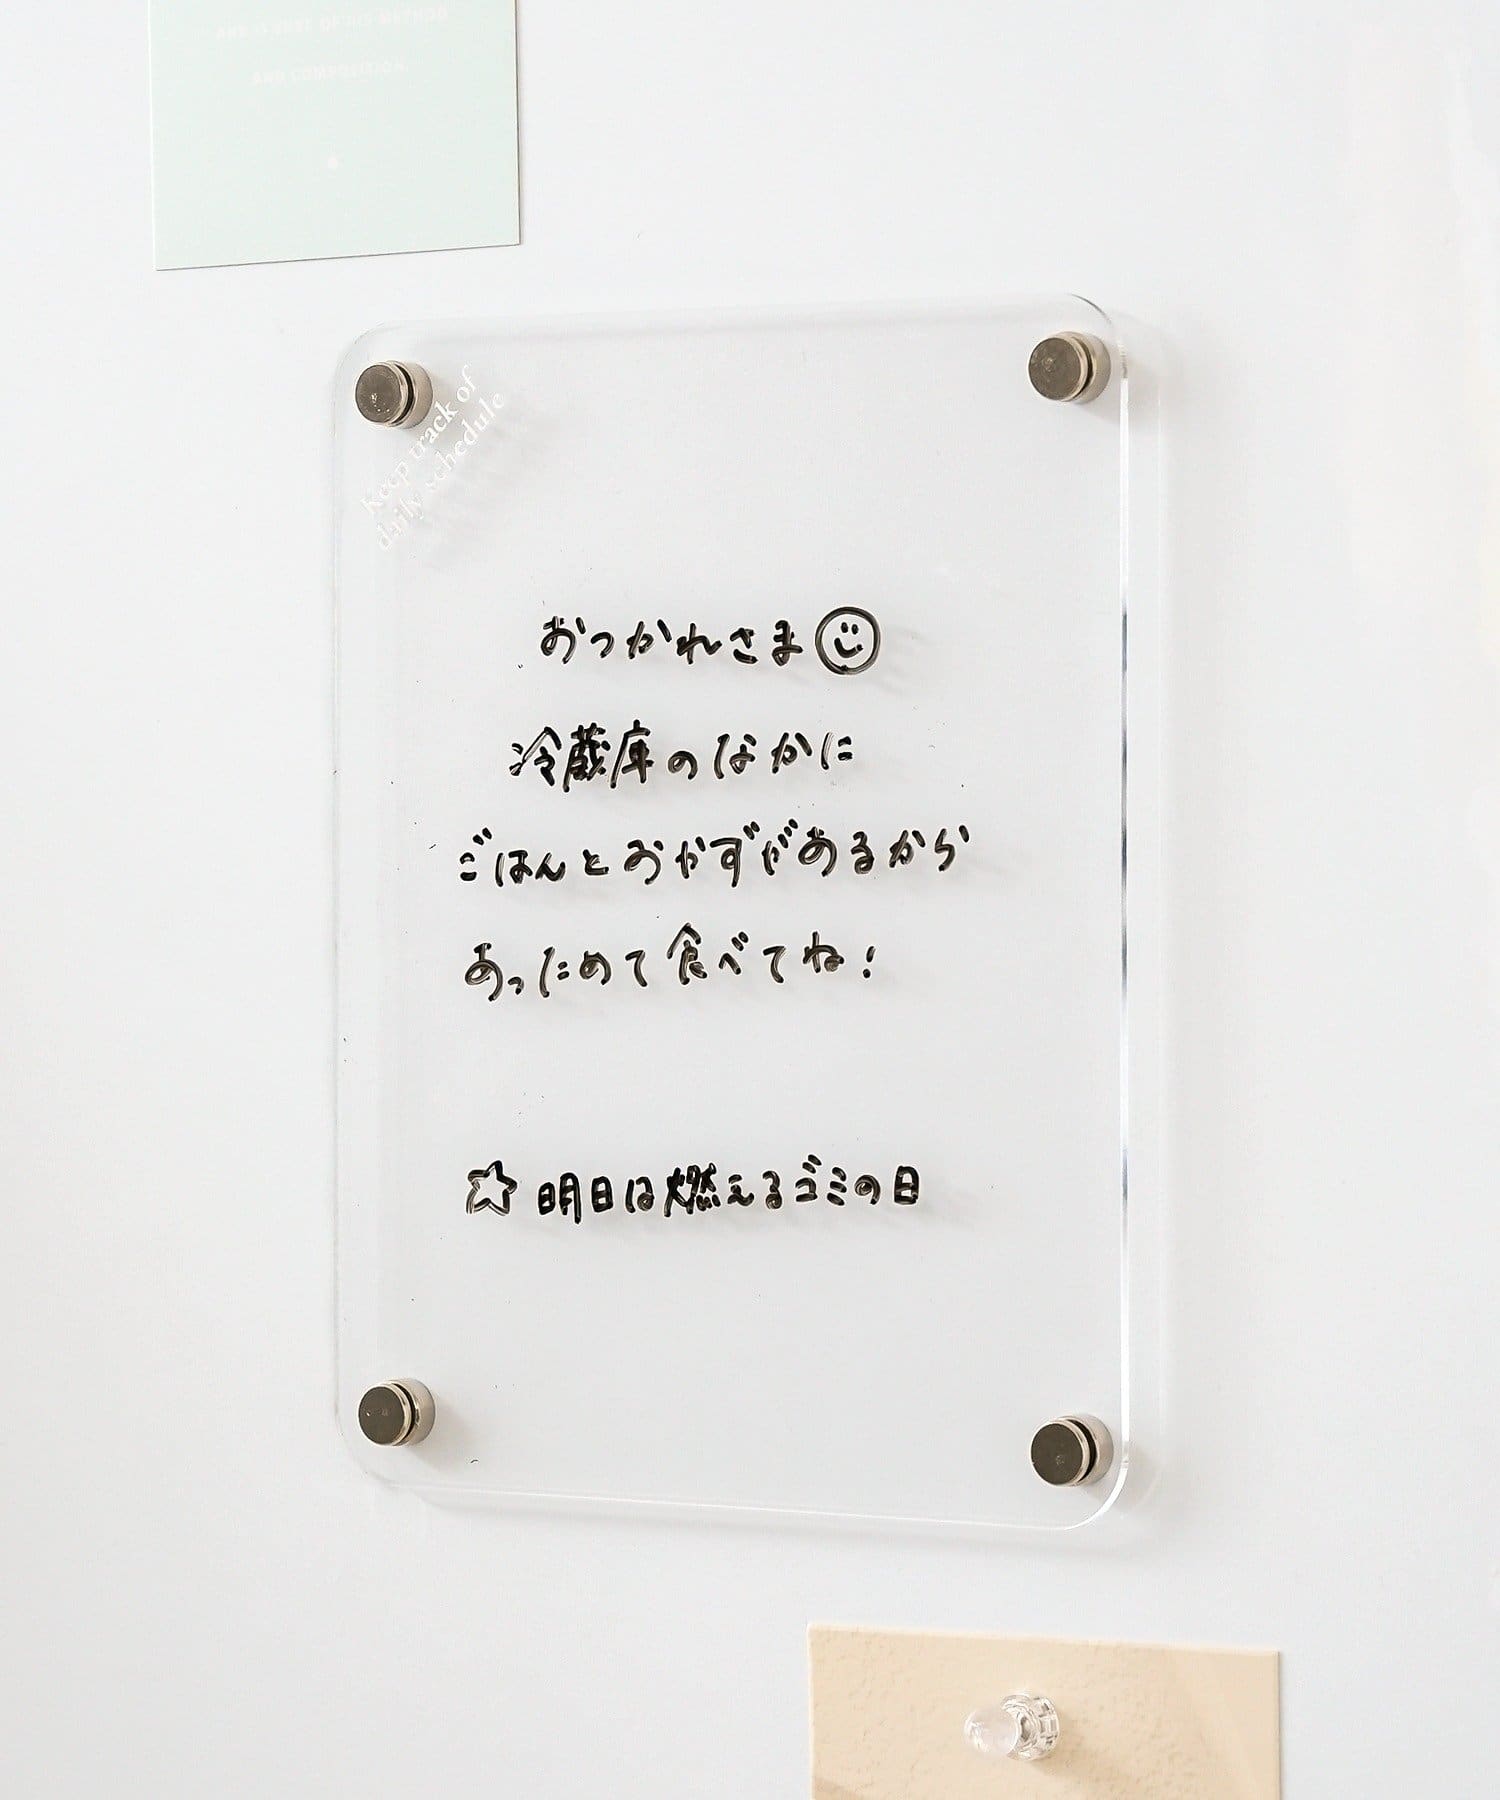 AND IS SURE OF HIS METHOD
AND COMPOSITION.
Keep track of
daily schedule
おつかれさま
冷蔵庫のなかに
ごはんとおかずがあるから
あっためて食べてね!
☆明日は燃えるゴミの日